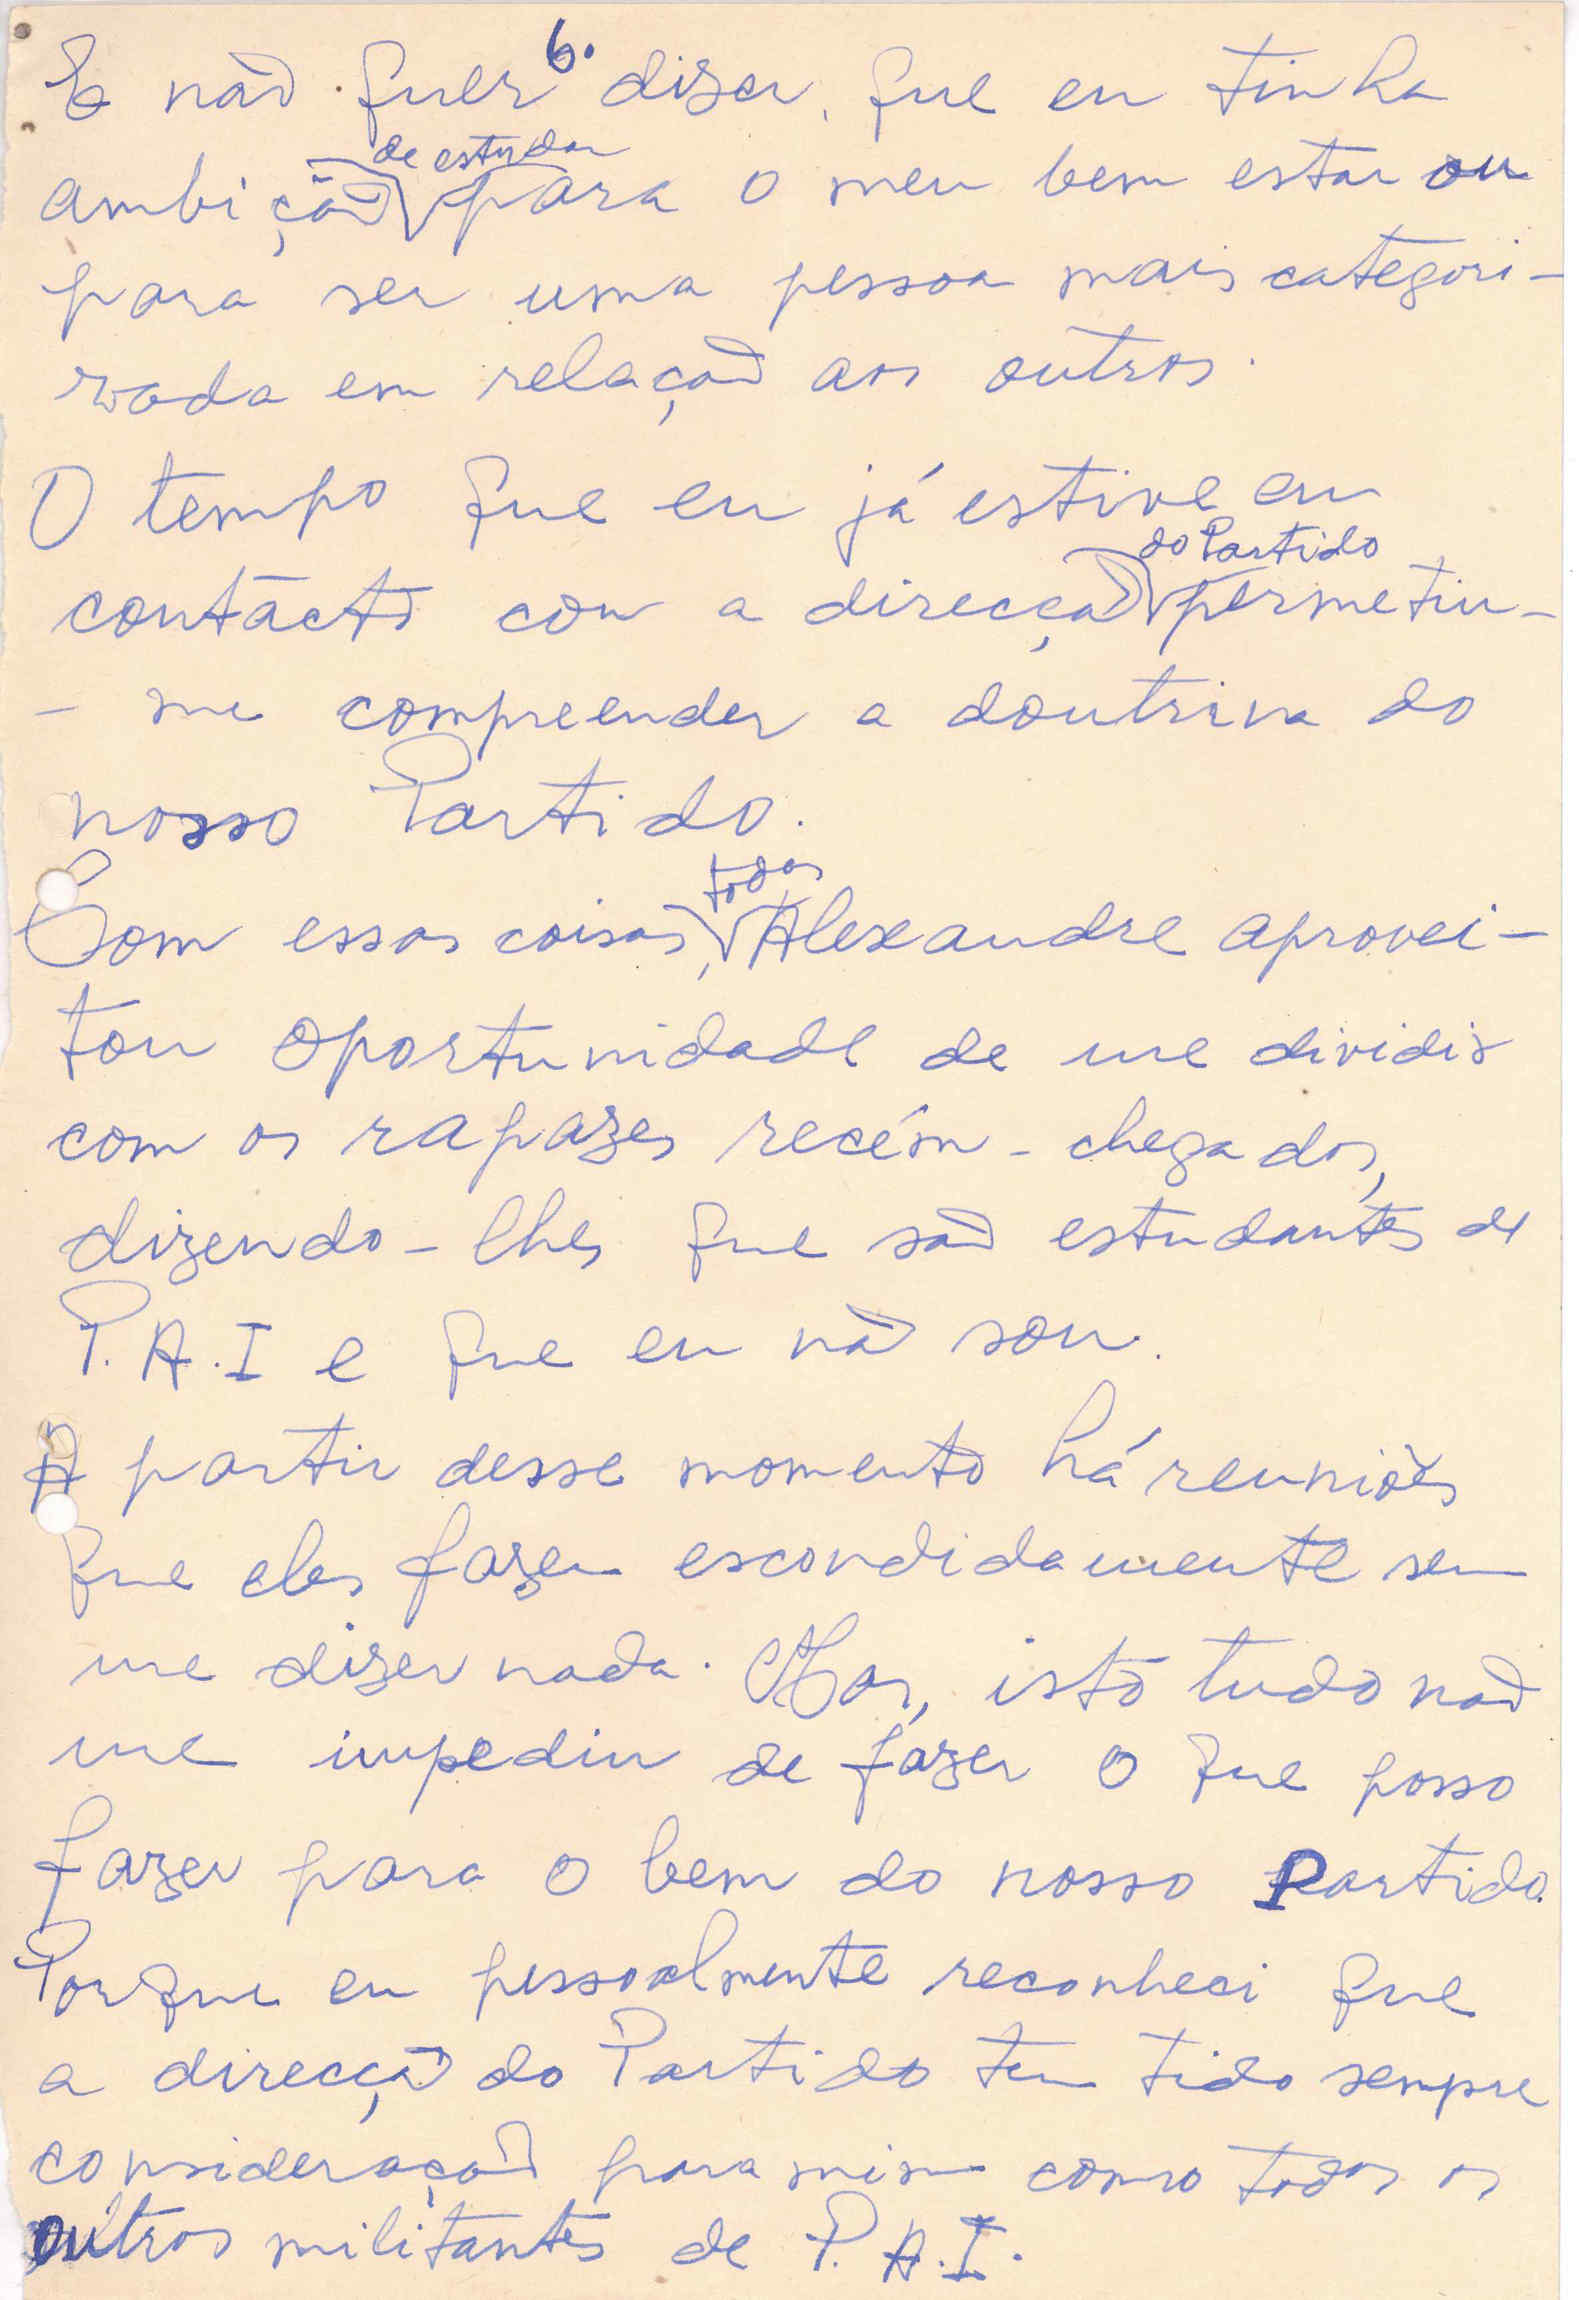 6.
E não quer dizer, que eu tinha
ambição de estudar para o meu bem estar ou
para ser uma pessoa mais categori-
zada em relação aos outros.
O tempo que eu já estive em
contacto com a direcção do Partido permetiu-
- me compreender a doutrina do
nosso Partido.
Com essas coisas, todas Alexandre aprovei-
tou oportunidade de me dividir
com os rapazes recém-chegados,
dizendo-lhes que são estudantes de
P.A.I e que eu não sou.
A partir desse momento há reuniões
que eles fazem escondidamente sem
me dizer nada. Mas, isto tudo não
me impediu de fazer o que posso
fazer para o bem do nosso Partido.
Porque eu pessoalmente reconheci que
a direcção do Partido tem tido sempre
consideração para mim como todos os
outros militantes de P.A.I.